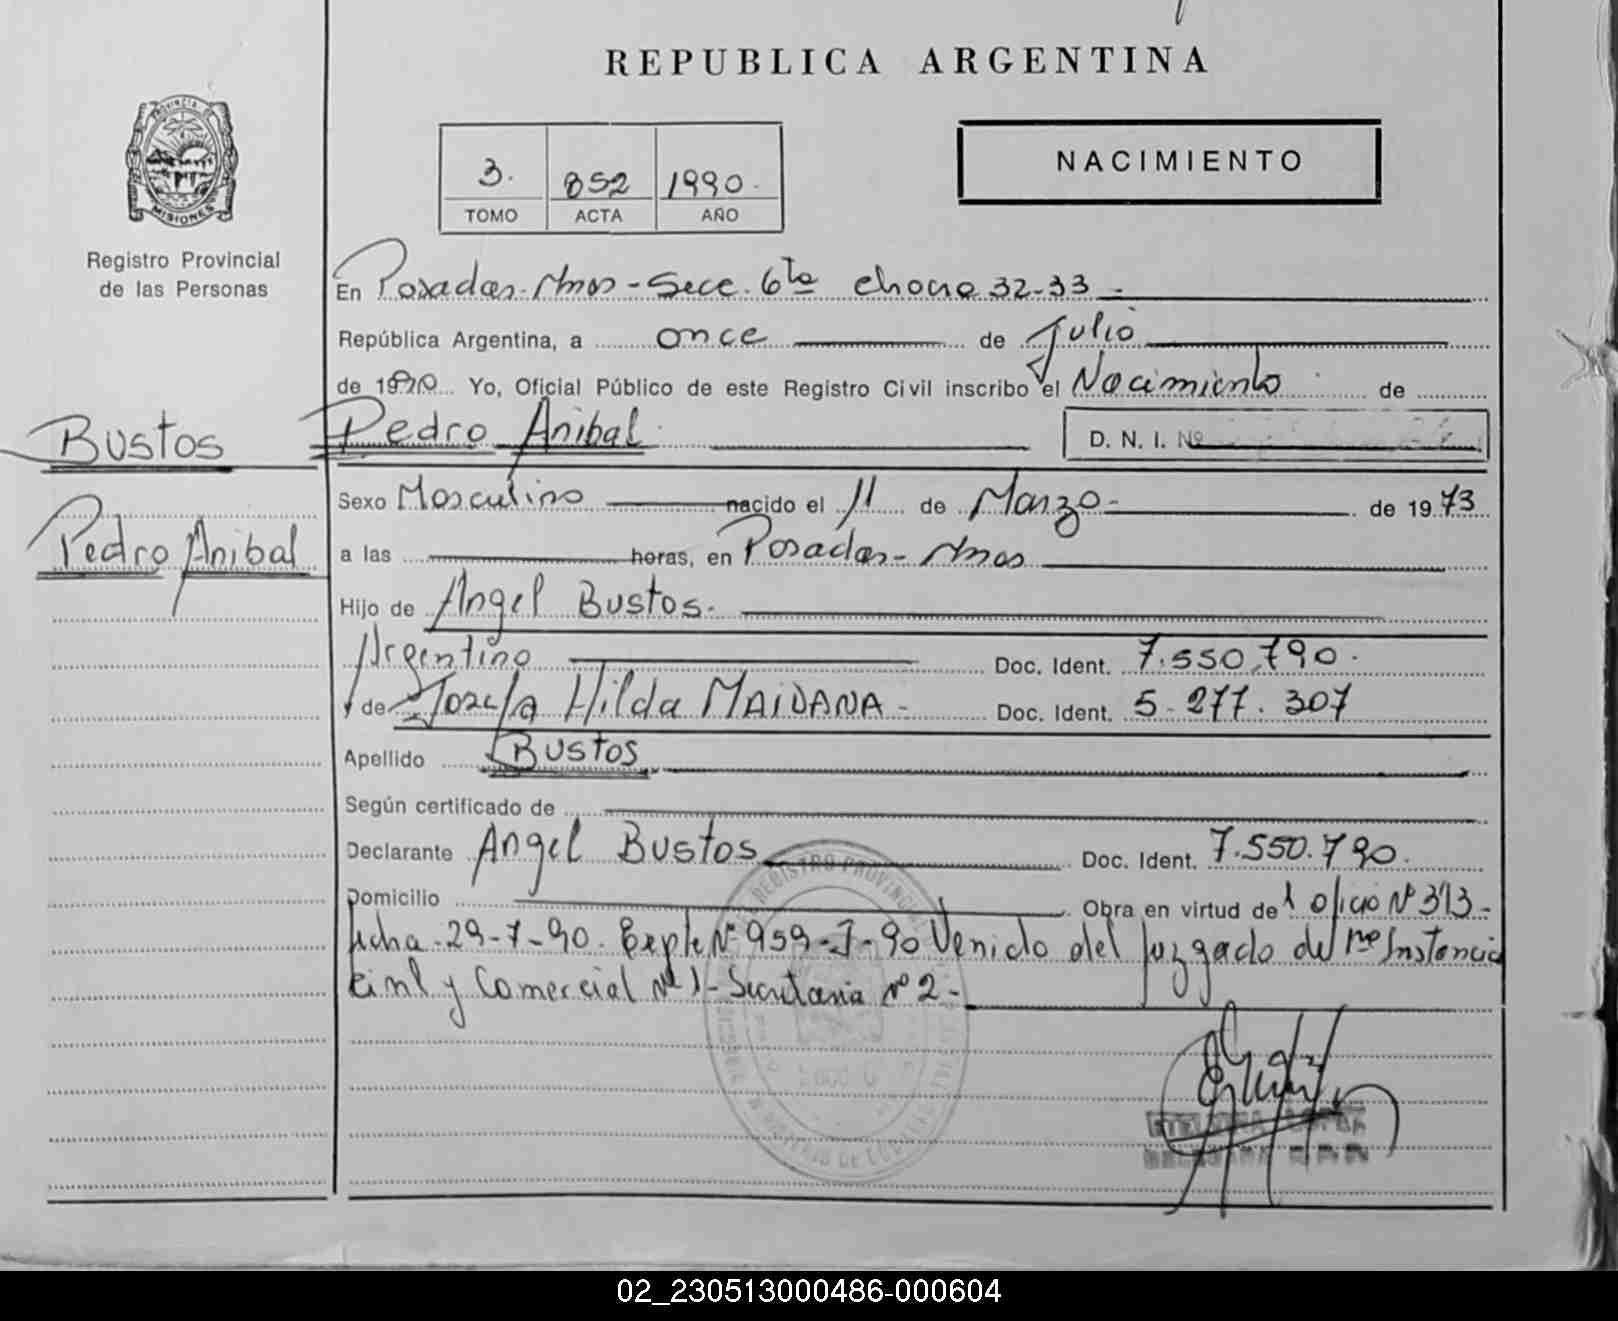 REPUBLICA ARGENTINA
PROVINCIA DE
MISIONES
Registro Provincial
de las Personas
3. 852 1990.
TOMO ACTA AÑO
NACIMIENTO
En Posadas-Mnes-Secc. 6ta chacra 32-33-
República Argentina, a once de Julio
de 1990 Yo, Oficial Público de este Registro Civil inscribo el Nacimiento de
Bustos
Pedro Anibal
Pedro Anibal D. N. I. Nº
Sexo Masculino nacido el 11 de Marzo- de 1973
a las horas, en Posadas-Mnes
Hijo de Angel Bustos.
Argentino Doc. Ident. 7.550.790.
y de Josefa Hilda MAIDANA- Doc. Ident. 5.277.307
Apellido Bustos
Según certificado de
Declarante Angel Bustos Doc. Ident. 7.550.790.
Domicilio Obra en virtud del oficio Nº 313-
fecha 29-7-90. Expte Nº 959-J-90 Venido del Juzgado de 1ra Instancia
Civil y Comercial Nº 1-Secretaria nº 2-
REGISTRO PROVINCIAL
02_230513000486-000604